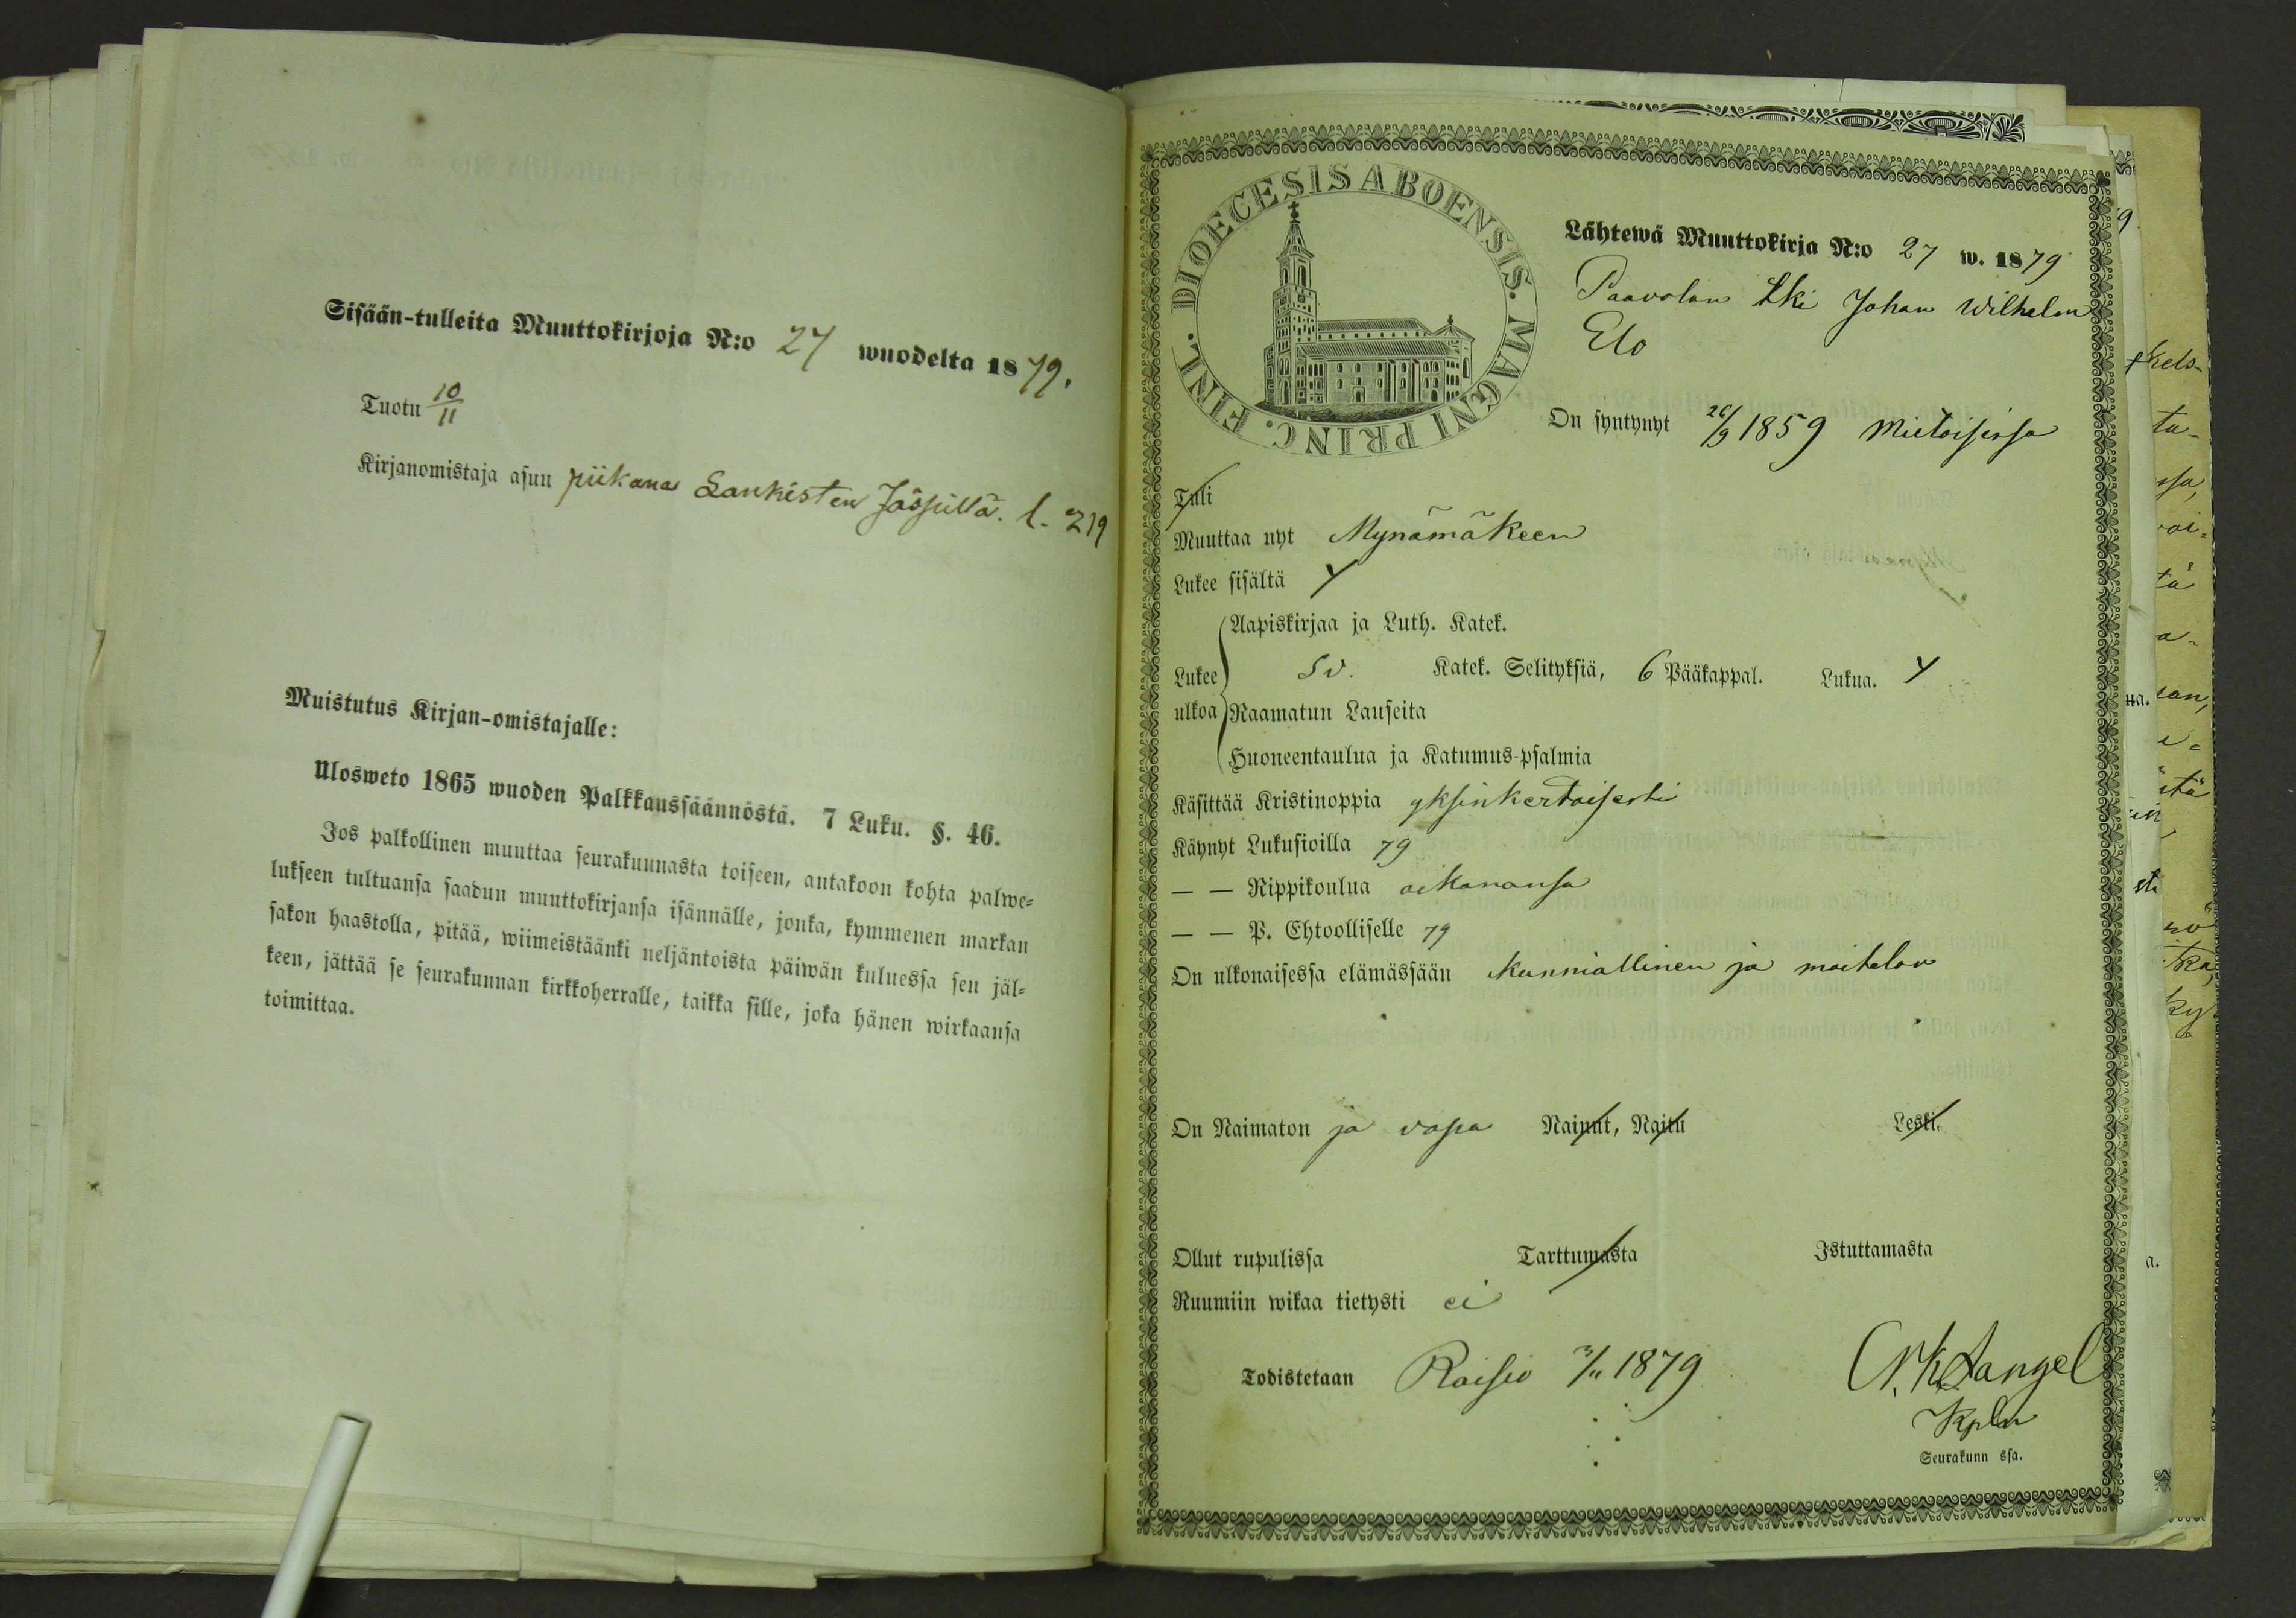 Sisään-tulleita Muuttokirjoja N:o 27 wuodelta 1879.
Tuotu 10/11
Kirjanomistaja asuu piikana Lankisten Jässillä. l. 219
Muistutus Kirjan-omistajalle:
Ulosweto 1865 wuoden Palkkaussäännöstä. 7 Luku. §. 46.
Jos palkollinen muuttaa seurakunnasta toiseen, antakoon kohta palwe-
lukseen tultuansa saadun muuttokirjansa isännälle, jonka, kymmenen markan
sakon haastolla, pitää, wiimeistäänki neljäntoista päiwän kuluessa sen jäl-
keen, jättää se seurakunnan kirkkoherralle, taikka sille, joka hänen wirkaansa
toimittaa.
DIOECESIS ABOENSIS. MAGNI PRINC. FINL.
Lähtewä Muuttokirja N:o 27 w. 1879
Paavolan Lki Johan Wilhelm
Elo
On syntynyt 26/9 1859 Mietoisissa
Tuli
Muuttaa nyt Mynämäkeen
Lukee sisältä y
Aapiskirjaa ja Luth. Katek.
Lukee ulkoa
Sv. Katek. Selityksiä, 6 Pääkappal. Lukua. y
Raamatun Lauseita
Huoneentaulua ja Katumus-psalmia
Käsittää Kristinoppia yksinkertaisesti
Käynyt Lukusioilla 79
— — Rippikoulua aikanansa
— — P. Ehtoolliselle 79
On ulkonaisessa elämässään kunniallinen ja moiteton
On Naimaton ja vapa Nainut, Naitu Leski.
Ollut rupulissa Tarttumasta Istuttamasta
Ruumiin wikaa tietysti ei
Todistetaan Raisio 3/11 1879
Kplan
Seurakunn ssa.